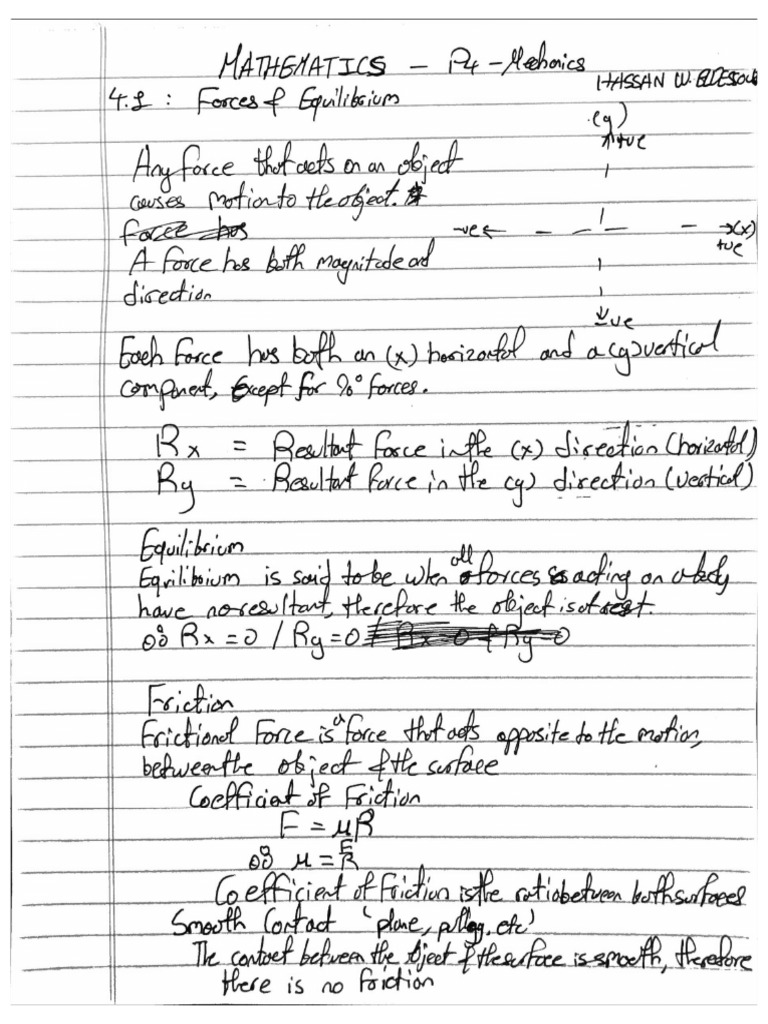 MATHEMATICS - P4 - Mechanics
HASSAN W. ELDESOU
4.1 : Forces & Equilibrium
(y)
+ve
Any force that acts on an object
causes motion to the object. A
force has
-ve (x)
+ve
A force has both magnitude and
direction
-ve
Each Force has both an (x) horizontal and a (y) vertical
component, Except for 90° forces.
Rx = Resultant Force in the (x) direction (horizontal)
Ry = Resultant Force in the (y) direction (vertical)
Equilibrium
Equilibrium is said to be when all forces acting on a body
have no resultant, therefore the object is at rest.
∴ Rx = 0 / Ry = 0 / Rx = 0 & Ry = 0
Friction
Frictional Force is a force that acts opposite to the motion,
between the object & the surface
Coefficient of Friction
F = μR
∴ μ = F/R
Coefficient of Friction is the ratio between both surfaces
Smooth Contact (plane, pulley, etc)
The contact between the object & the surface is smooth, therefore
there is no friction